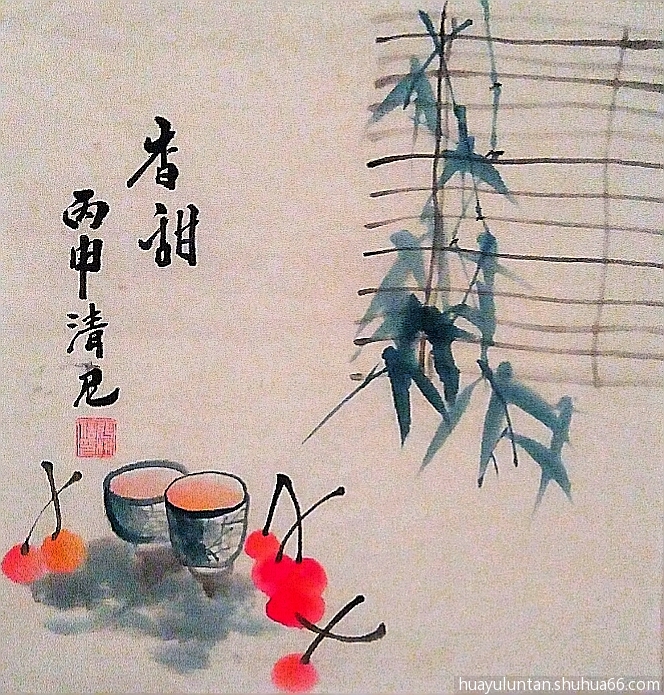 香甜
丙申清
huayuluntan.shuhua66.com